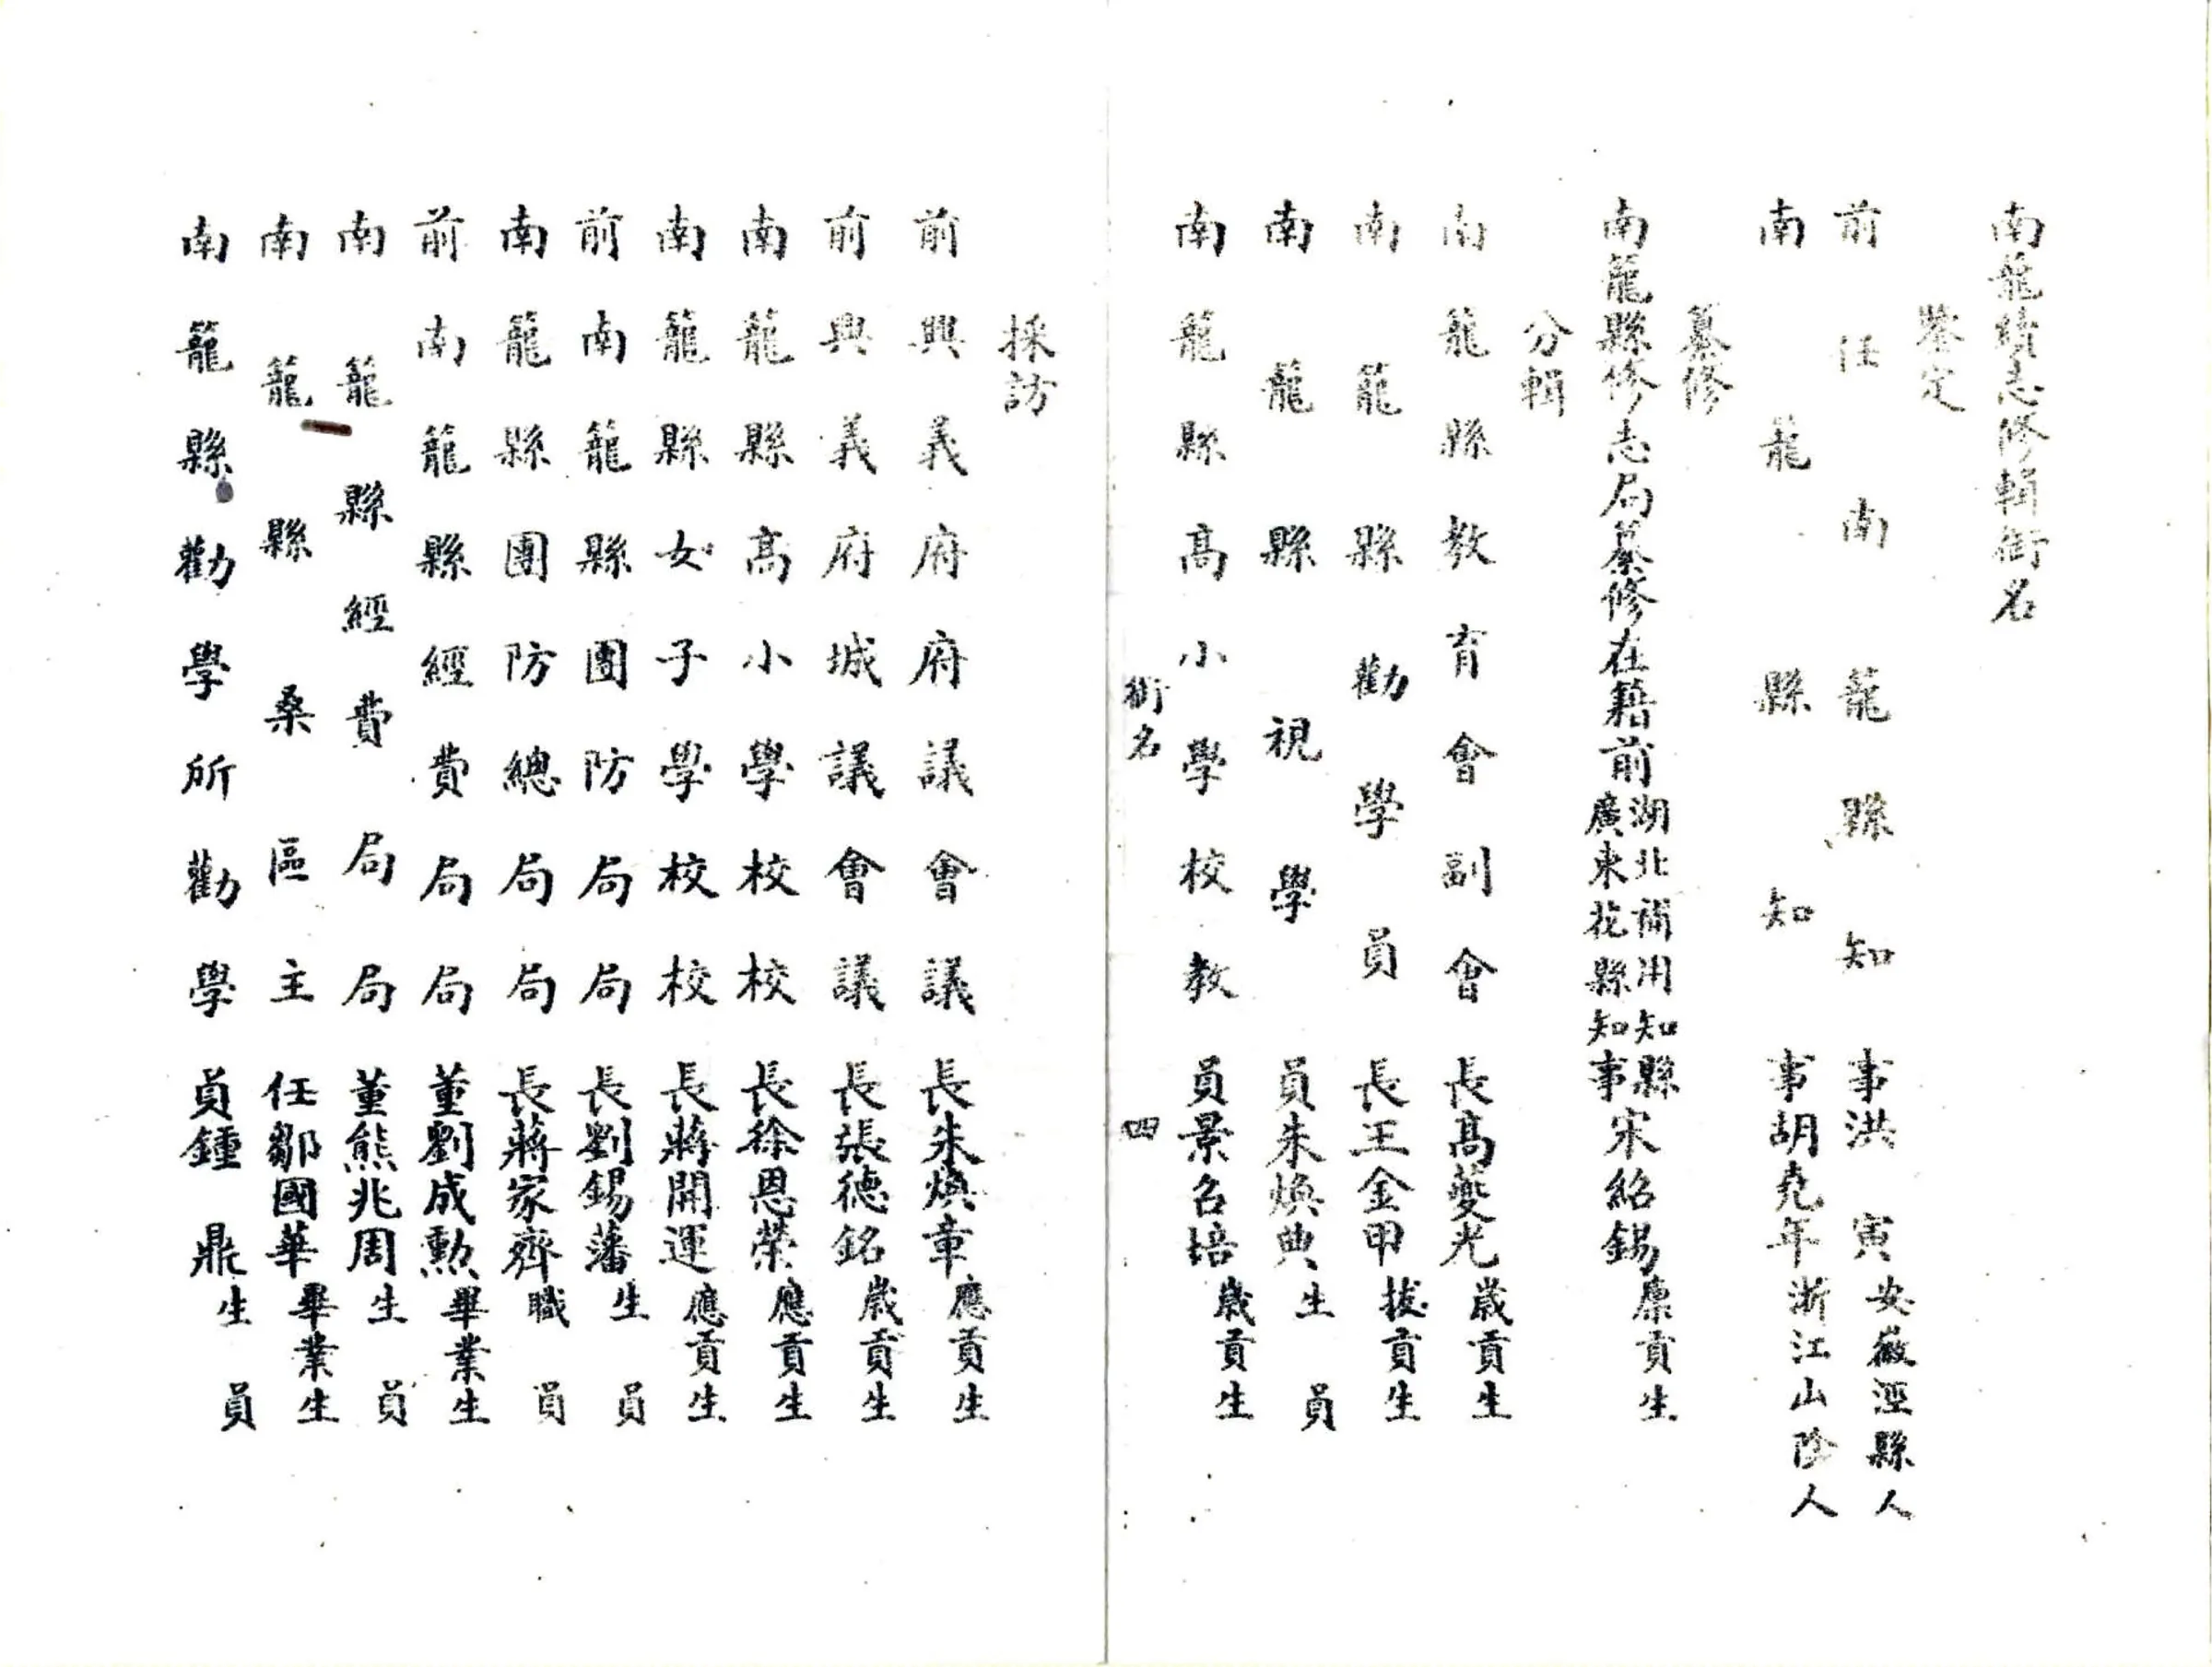 南籠續志修輯銜名
鑒定
前任南籠縣知事洪寅安徽涇縣人
南籠縣知事胡堯年浙江山陰人
纂修
南籠縣修志局纂修在籍前湖北補用知縣廣東花縣知事宋紹錫廩貢生
分輯
南籠縣教育會副會長高夔光歲貢生
南籠縣勸學員長王金甲拔貢生
南籠縣視學員朱煥典生員
南籠縣高小學校教員景召培歲貢生
銜名
四
採訪
前興義府府議會議長朱煥章應貢生
前興義府城議會議長張德銘歲貢生
南籠縣高小學校校長徐恩榮應貢生
南籠縣女子學校校長蔣開運應貢生
前南籠縣團防局局長劉錫藩生員
南籠縣團防總局局長蔣家齊職員
前南籠縣經費局局董劉成勳畢業生
南籠縣經費局局董熊兆周生員
南籠縣桑區主任鄒國華畢業生
南籠縣勸學所勸學員鍾鼎生員